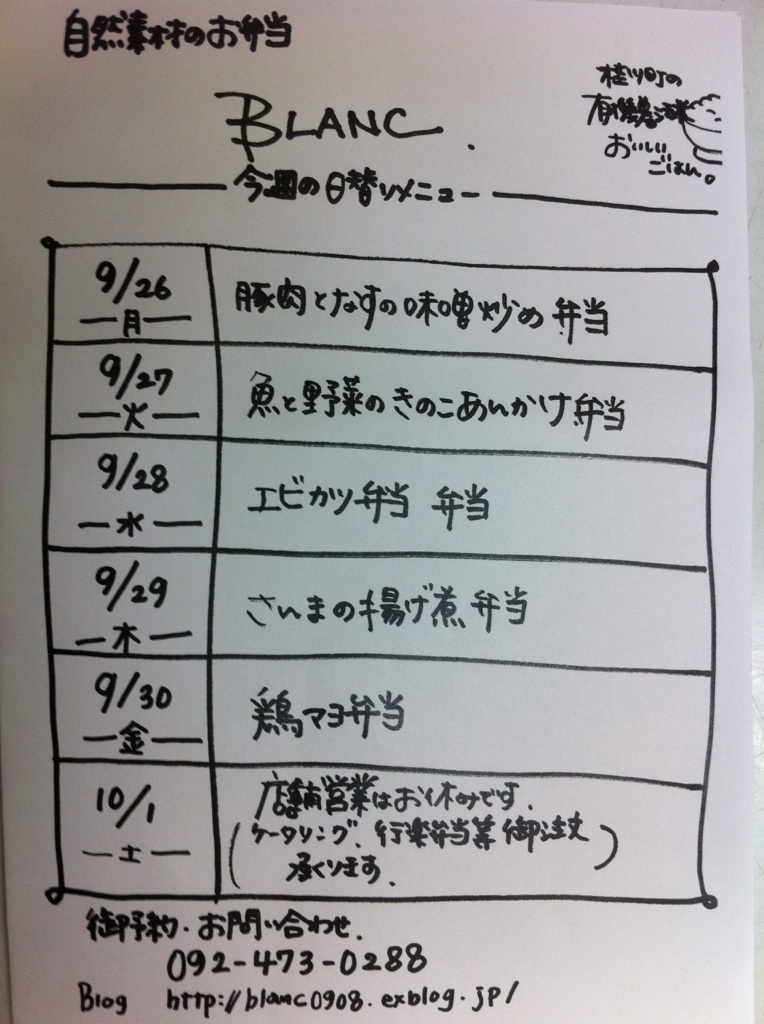 自然素材のお弁当
BLANC.
桂川町の
おいしい
ごはん。
今週の日替りメニュー
9/26
月
豚肉となすの味噌炒め弁当
9/27
火
魚と野菜のきのこあんかけ弁当
9/28
水
エビカツ弁当 弁当
9/29
木
さんまの揚げ煮弁当
9/30
金
鶏マヨ弁当
10/1
土
店舗営業はお休みです.
(ケータリング、行楽弁当等御注文
承ります.)
御予約・お問い合わせ.
092-473-0288
Blog http://blanc0908.exblog.jp/